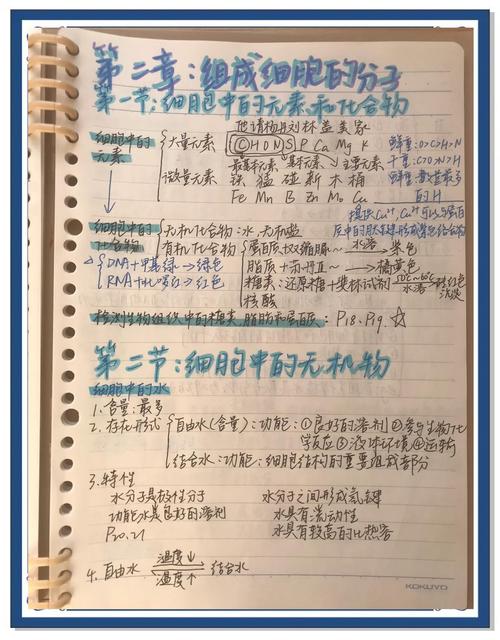 第二章:组成细胞的分子
第一节:细胞中的元素和化合物
他请杨丹刘林盖美家
细胞中的元素
大量元素 C H O N S P Ca Mg K
最基本元素 基本元素 主要元素
微量元素 铁 猛 碰 新 木 桶
Fe Mn B Zn Mo Cu
鲜重:O>C>H>N
干重:C>O>N>H
鲜重:数量最多的H
提供Cu²⁺,Cu²⁺可以与蛋白质中的肽键形成紫色络合物
细胞中的化合物
无机化合物:水、无机盐
有机化合物:
蛋白质+双缩脲~ 紫色
脂质+苏丹Ⅲ~ 橘黄色
糖类:还原糖+斐林试剂 50℃~65℃ 水浴 砖红色沉淀
核酸
DNA+甲基绿→绿色
RNA+吡罗红→红色
检测生物组织中的糖类、脂肪和蛋白质:P18、P19.☆
第二节:细胞中的无机物
细胞中的水
1.含量:最多
2.存在形式
自由水(含量):功能:①良好的溶剂②参与生物化
学反应③液体环境④运输
结合水:功能:细胞结构的重要组成部分
3.特性
水分子是极性分子 水分子之间形成氢键
功能水是良好的溶剂 水具有流动性
P20、21 水具有较高的比热容
4.自由水 温度↓ 温度↑ 结合水
KOKUYO